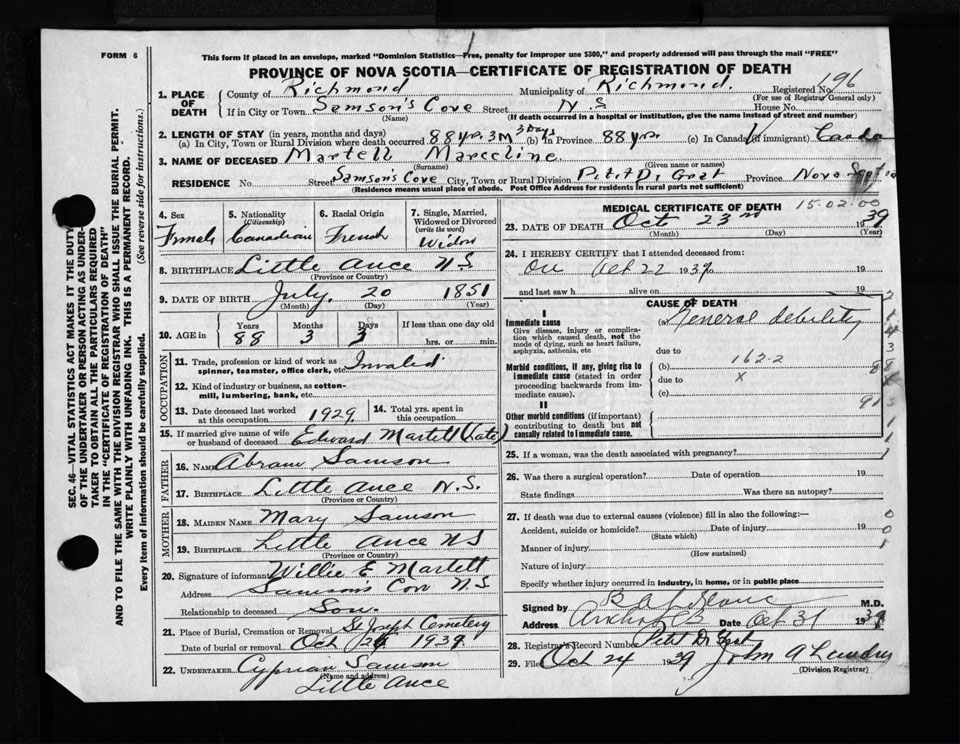 FORM 6
This form if placed in an envelope, marked "Dominion Statistics—Free, penalty for improper use $300," and properly addressed will pass through the mail "FREE"
PROVINCE OF NOVA SCOTIA—CERTIFICATE OF REGISTRATION OF DEATH
1. PLACE OF DEATH
County of Richmond Municipality of Richmond. Registered No. 196
(For use of Registrar General only)
If in City or Town Samson's Cove Street N.S House No.
(Name) (If death occurred in a hospital or institution, give the name instead of street and number)
2. LENGTH OF STAY (in years, months and days)
(a) In City, Town or Rural Division where death occurred 88 yrs. 3 M 3 Days (b) In Province 88 yrs (c) In Canada (if immigrant) Canada
3. NAME OF DECEASED Martell Marceline
(Surname) (Given name or names)
RESIDENCE No. Street Samson's Cove City, Town or Rural Division Petit De Grat Province Nova Scotia
(Residence means usual place of abode. Post Office Address for residents in rural parts not sufficient)
4. Sex Female
5. Nationality (Citizenship) Canadian
6. Racial Origin French
7. Single, Married, Widowed or Divorced (write the word) Widow
8. BIRTHPLACE Little Ance N.S.
(Province or Country)
9. DATE OF BIRTH July. 20 1851
(Month) (Day) (Year)
10. AGE in Years 88 Months 3 Days 3 If less than one day old hrs. or min.
OCCUPATION
11. Trade, profession or kind of work as spinner, teamster, office clerk, etc. Invalid
12. Kind of industry or business, as cotton-mill, lumbering, bank, etc.
13. Date deceased last worked at this occupation 1929
14. Total yrs. spent in this occupation
15. If married give name of wife or husband of deceased Edward Martell (Late)
FATHER
16. NAME Abram Samson
17. BIRTHPLACE Little Ance N.S.
(Province or Country)
MOTHER
18. MAIDEN NAME Mary Samson
19. BIRTHPLACE Little Ance N S
(Province or Country)
20. Signature of informant Willie E Martell
Address Samson's Cove N.S.
Relationship to deceased Son.
21. Place of Burial, Cremation or Removal St Joseph Cemetery
Date of burial or removal Oct 24 1939.
22. UNDERTAKER Cyprian Samson
(Name and address)
Little Ance
MEDICAL CERTIFICATE OF DEATH 15-02-00
23. DATE OF DEATH Oct 23rd 1939
(Month) (Day) (Year)
24. I HEREBY CERTIFY that I attended deceased from:
On Oct 22 1939 to 19
and last saw h alive on 19
CAUSE OF DEATH
I
Immediate cause (a) General debility
Give disease, injury or complication which caused death, not the mode of dying, such as heart failure, asphyxia, asthenia, etc
due to
162-2
Morbid conditions, if any, giving rise to immediate cause (stated in order proceeding backwards from immediate cause). (b)
due to x
(c)
II
Other morbid conditions (if important) contributing to death but not causally related to immediate cause.
25. If a woman, was the death associated with pregnancy?
26. Was there a surgical operation? Date of operation 19
State findings Was there an autopsy?
27. If death was due to external causes (violence) fill in also the following:—
Accident, suicide or homicide? Date of injury 19
(State which)
Manner of injury
(How sustained)
Nature of injury
Specify whether injury occurred in industry, in home, or in public place
Signed by M.D.
Address Arichat CB Date Oct 31 1939
28. Registrar's Record Number Petit De Grat
29. Filed Oct 24 1939 John A Landry
(Division Registrar)
SEC. 46—VITAL STATISTICS ACT MAKES IT THE DUTY OF THE UNDERTAKER OR PERSON ACTING AS UNDERTAKER TO OBTAIN ALL THE PARTICULARS REQUIRED IN THE "CERTIFICATE OF REGISTRATION OF DEATH"
AND TO FILE THE SAME WITH THE DIVISION REGISTRAR WHO SHALL ISSUE THE BURIAL PERMIT.
WRITE PLAINLY WITH UNFADING INK. THIS IS A PERMANENT RECORD.
Every item of information should be carefully supplied. (See reverse side for instructions.)